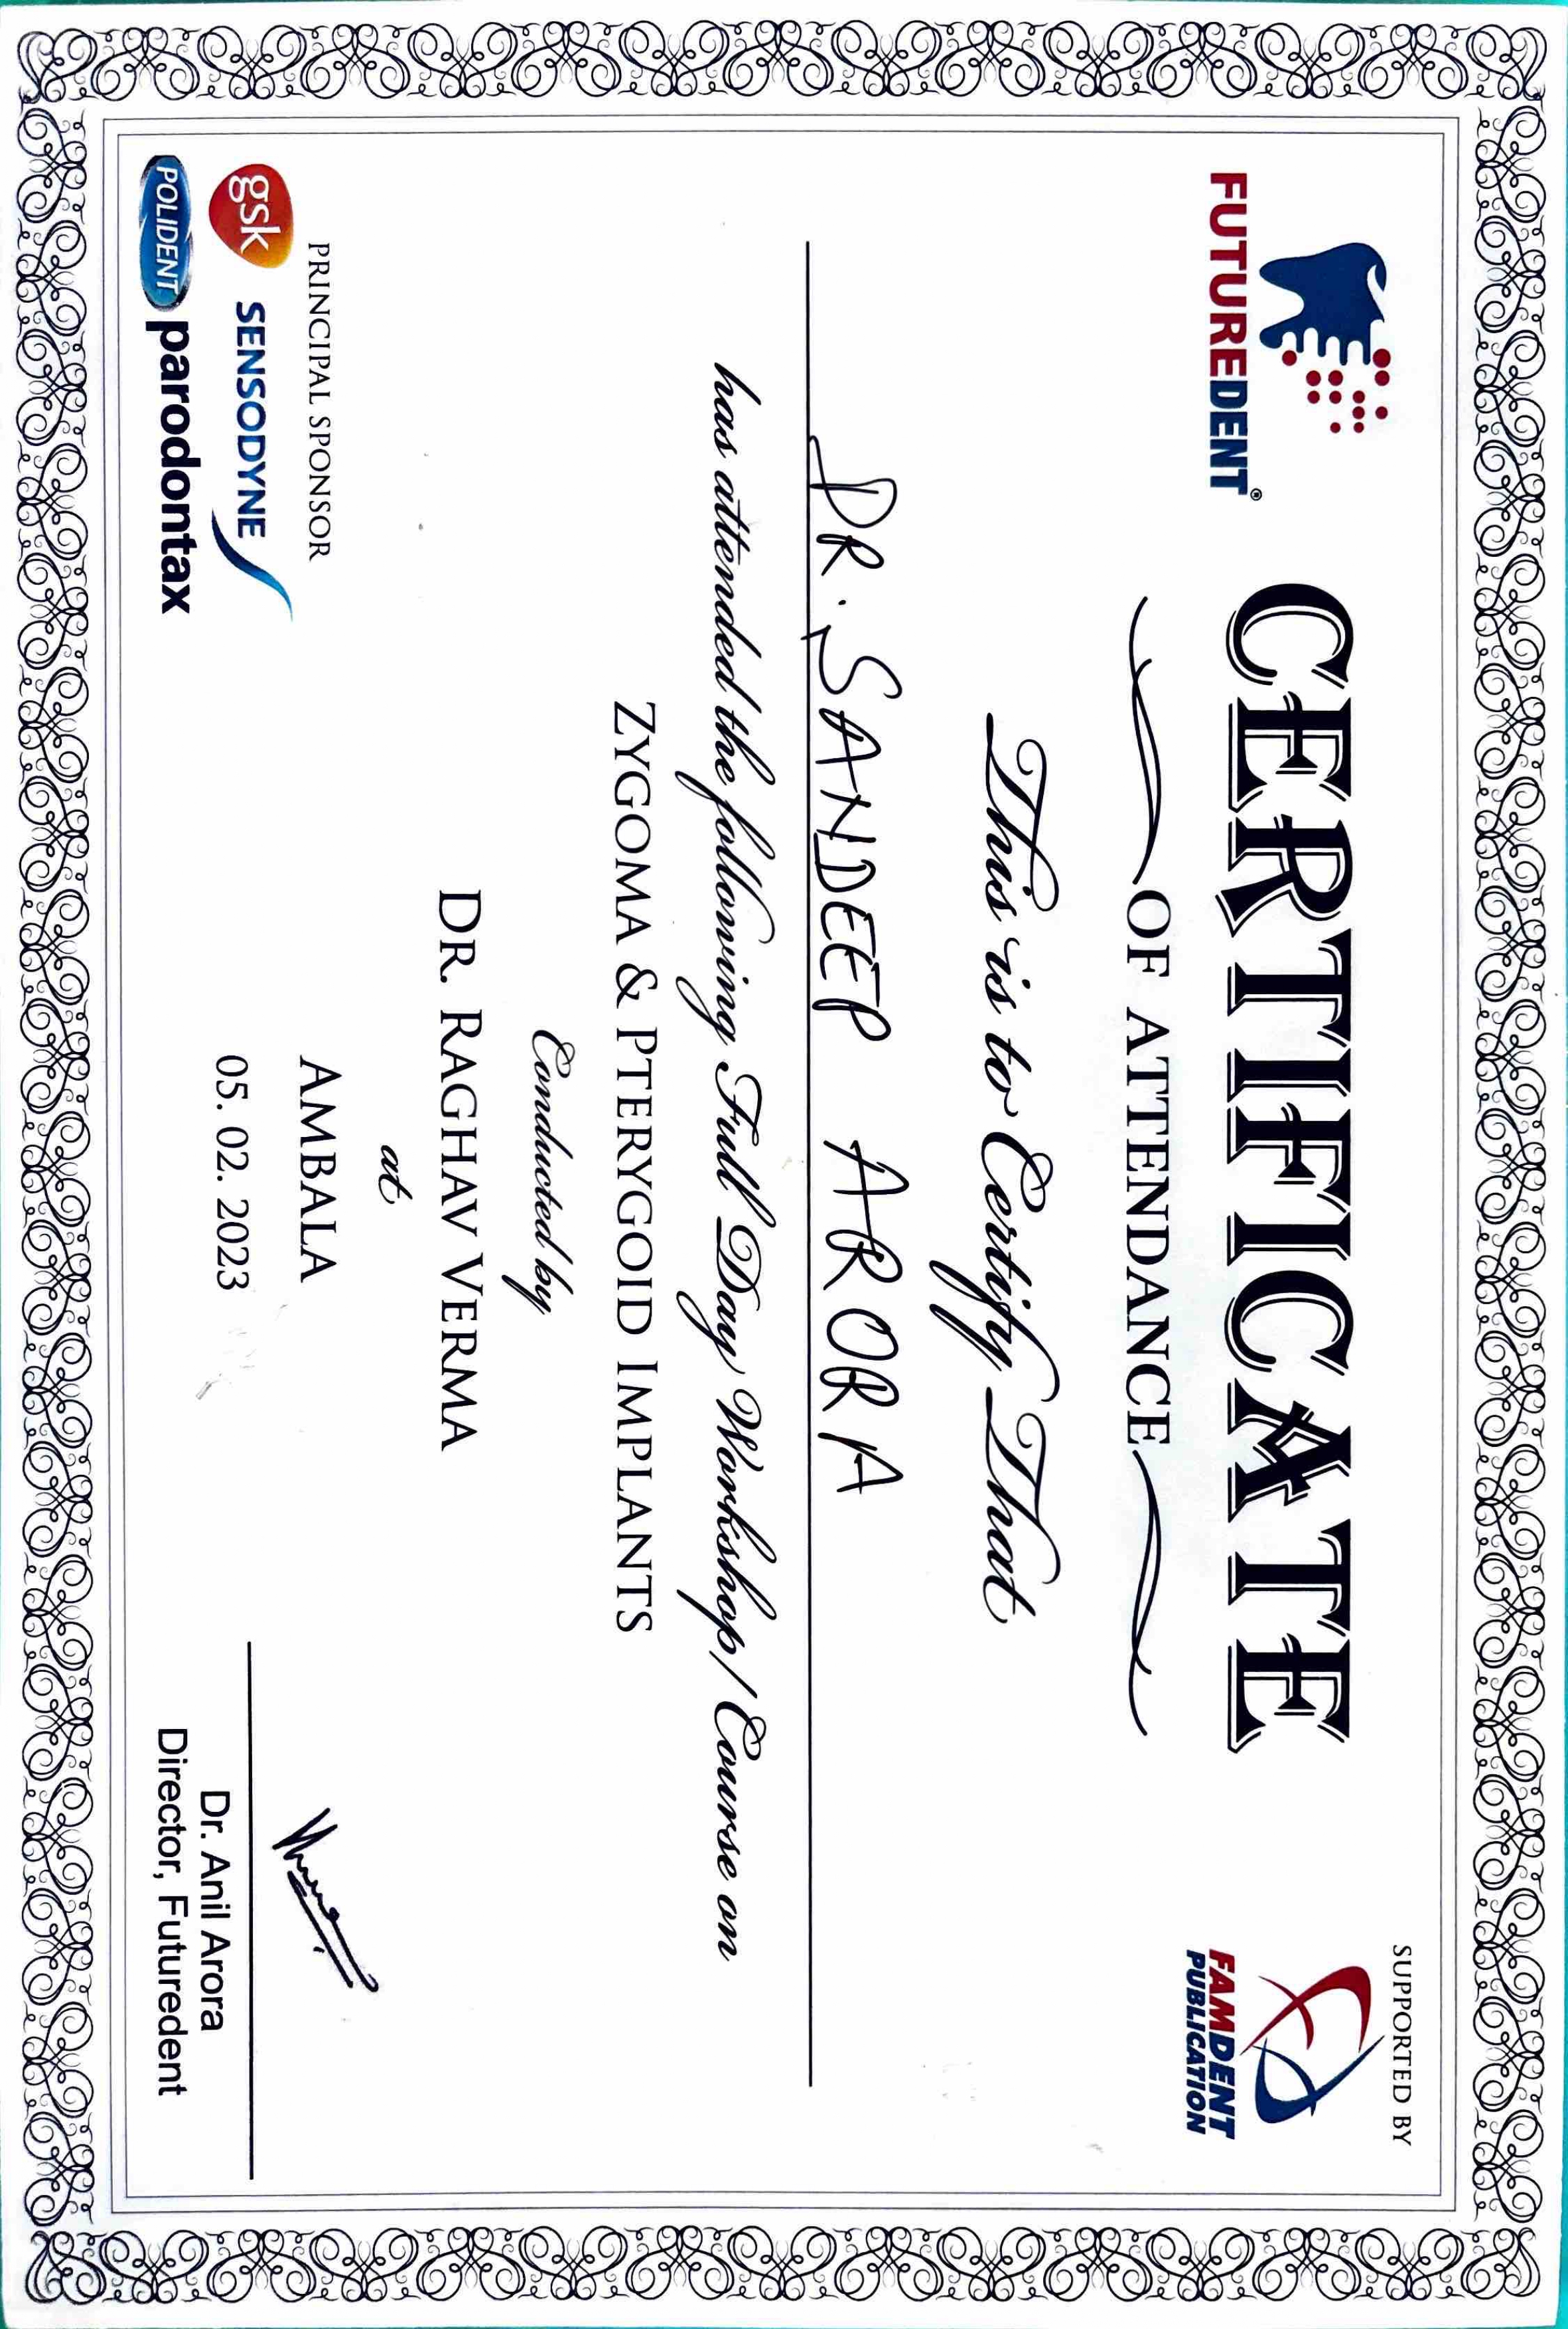 SUPPORTED BY
FUTUREDENT®
FAMDENT
PUBLICATION
CERTIFICATE
OF ATTENDANCE
This is to Certify That
DR. SANDEEP ARORA
has attended the following Full Day Workshop/ Course on
ZYGOMA & PTERYGOID IMPLANTS
Conducted by
DR. RAGHAV VERMA
at
AMBALA
05. 02. 2023
PRINCIPAL SPONSOR
gsk SENSODYNE
POLIDENT parodontax
Dr. Anil Arora
Director, Futuredent